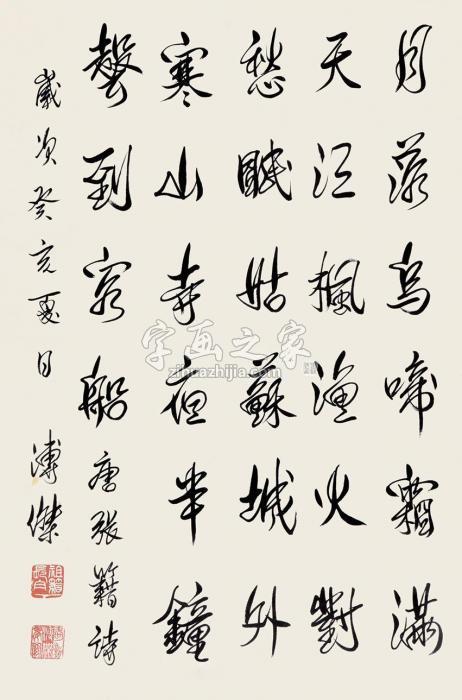 月落烏啼霜滿
天江楓漁火對
愁眠姑蘇城外
寒山寺夜半鐘
聲到客船 唐張籍詩
歲次癸亥夏日 溥傑
字画之家
zihuazhijia.com